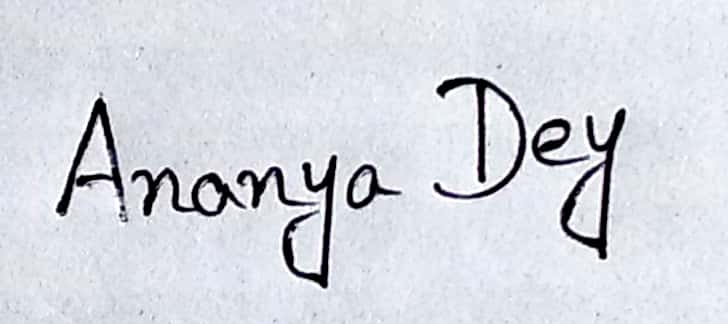 Ananya Dey